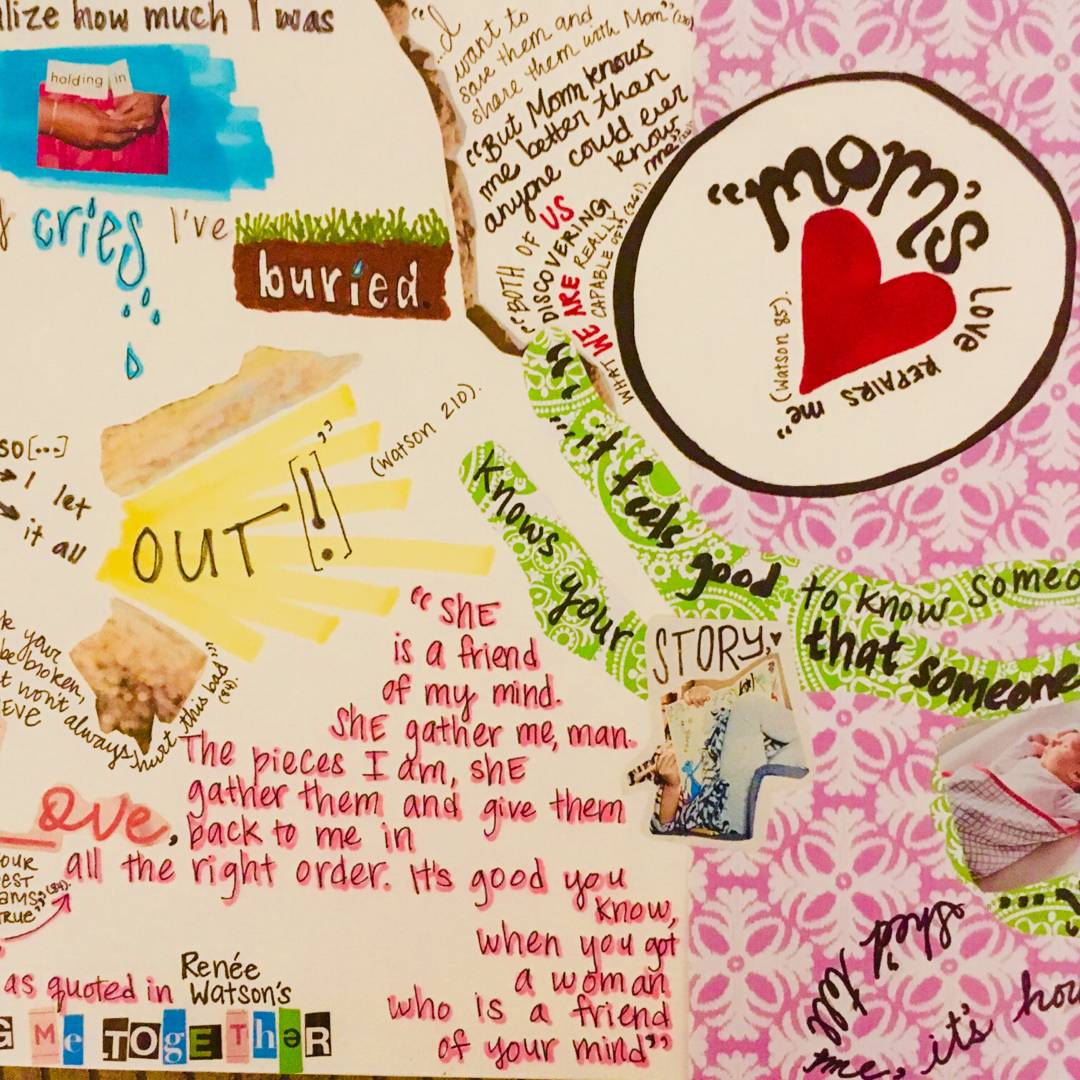 alize how much I was
holding in
cries I've
buried.
"I
want to
save them and
share them with Mom"
"But Mom knows
me better than
anyone could ever
know
me"
"BOTH OF US
DISCOVERING
WHAT WE ARE REALLY
CAPABLE OF"
"mom's
love REPAIRS me"
(Watson 85).
so[...]
I let
it all
OUT[!]"
(Watson 210).
"it feels good to know someo
knows your STORY, that someone
k your
be broken,
t won't always hurt this bad"
EVE
ove,
OUR
EST
AMS
TRUE"
"SHE
is a friend
of my mind.
SHE gather me, man.
The pieces I am, SHE
gather them and give them
back to me in
all the right order. It's good you
know,
when you got
a woman
who is a friend
of your mind"
as quoted in Renée
Watson's
G Me TOgETHƏR
she'd
tell
me, it's how